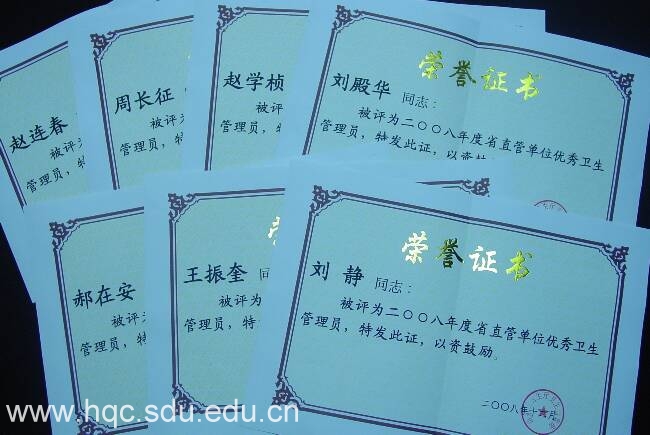 赵连春
被评
管理员，
周长征
被评为
管理员，特
赵学桢
被评为
管理员，特
荣誉证书
刘殿华 同志：
被评为二〇〇八年度省直管单位优秀卫生
管理员，特发此证，以资鼓
郝在安
被评为
管理员，特
王振奎 同
被评为
管理员，特
荣誉证书
刘静 同志：
被评为二〇〇八年度省直管单位优秀卫生
管理员，特发此证，以资鼓励。
二〇〇八年十月
www.hqc.sdu.edu.cn